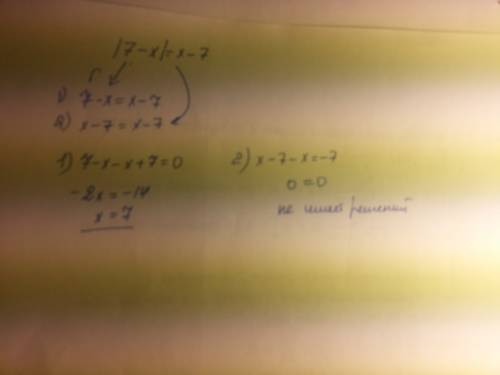 |7-x|=x-7
1) 7-x=x-7
2) x-7=x-7
1) 7-x-x+7=0
-2x=-14
x=7
2) x-7-x=-7
0=0
не имеет решений